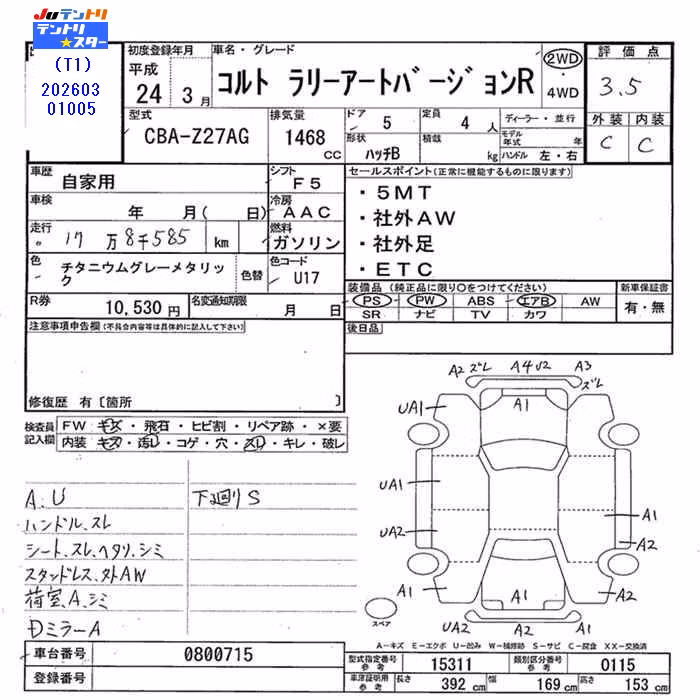 JUテントリ
テントリ
★スター
(T1)
202603
01005
初度登録年月
平成
24 3月
車名・グレード
コルト ラリーアートバージョンR
2WD
・
4WD
評価点
3.5
外装 内装
C C
型式
CBA-Z27AG
排気量
1468
CC
ドア
5
定員
4人
形状
ハッチB
積載
kg
ディーラー・並行
モデル年式 年
ハンドル 左・右
車歴
自家用
シフト
F5
車検
年 月( 日)
冷房
AAC
走行
17万8千585 km
燃料
ガソリン
色
チタニウムグレーメタリック
色替
色コード
U17
R券
10,530円
名変通知期限
月 日
セールスポイント(正常に機能するものに限ります)
・5MT
・社外AW
・社外足
・ETC
装備品(純正品に限り○をつけてください)
PS PW ABS エアB AW
SR ナビ TV カワ
新車保証書
有・無
後日品
注意事項申告欄(不具合内容等は具体的に記入して下さい)
修復歴 有〔箇所 〕
検査員
記入欄
FW キズ・飛石・ヒビ割・リペア跡・×要
内装 キズ・汚レ・コゲ・穴・スレ・キレ・破レ
A.U
下廻りS
ハンドル.スレ
シート.スレ.ヘタリ.シミ
スタッドレス.外AW
荷室.A.シミ
Dミラー A
A2 ズレ A4U2 A3
ズレ
UA1 A1
UA1
A1
UA2
A2
A1 A1 A1
UA2 A2 A2
スペア
A-キズ E-エクボ U-凹み W-補修跡 S-サビ C-腐食 XX-交換済
車台番号
0800715
登録番号
型式指定番号
参考
15311
類別区分番号
参考
0115
車庫証明用
参考
長さ
392 cm
幅
169 cm
高さ
153 cm